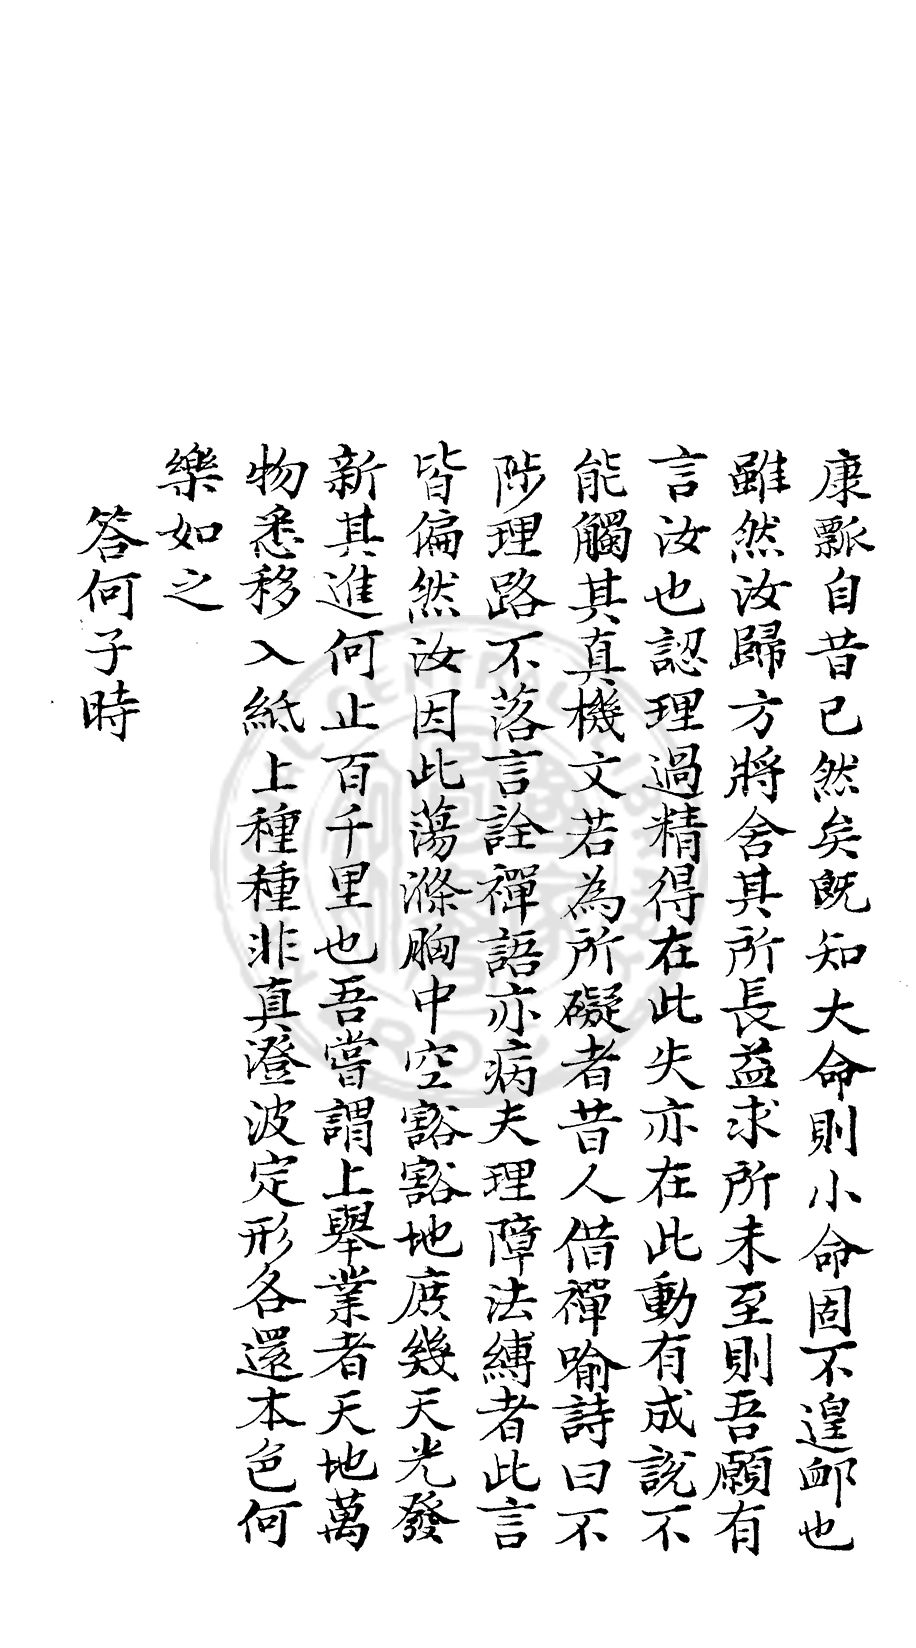 康瓢自昔已然矣既知大命則小命固不遑卹也
雖然汝歸方將舍其所長益求所未至則吾願有
言汝也認理過精得在此失亦在此動有成說不
能觸其真機文若為所礙者昔人借禪喻詩曰不
陟理路不落言詮禪語亦病夫理障法縛者此言
皆偏然汝因此蕩滌胸中空豁豁地庶幾天光發
新其進何止百千里也吾嘗謂上舉業者天地萬
物悉移入紙上種種非真澄波定形各還本色何
樂如之
答何子時